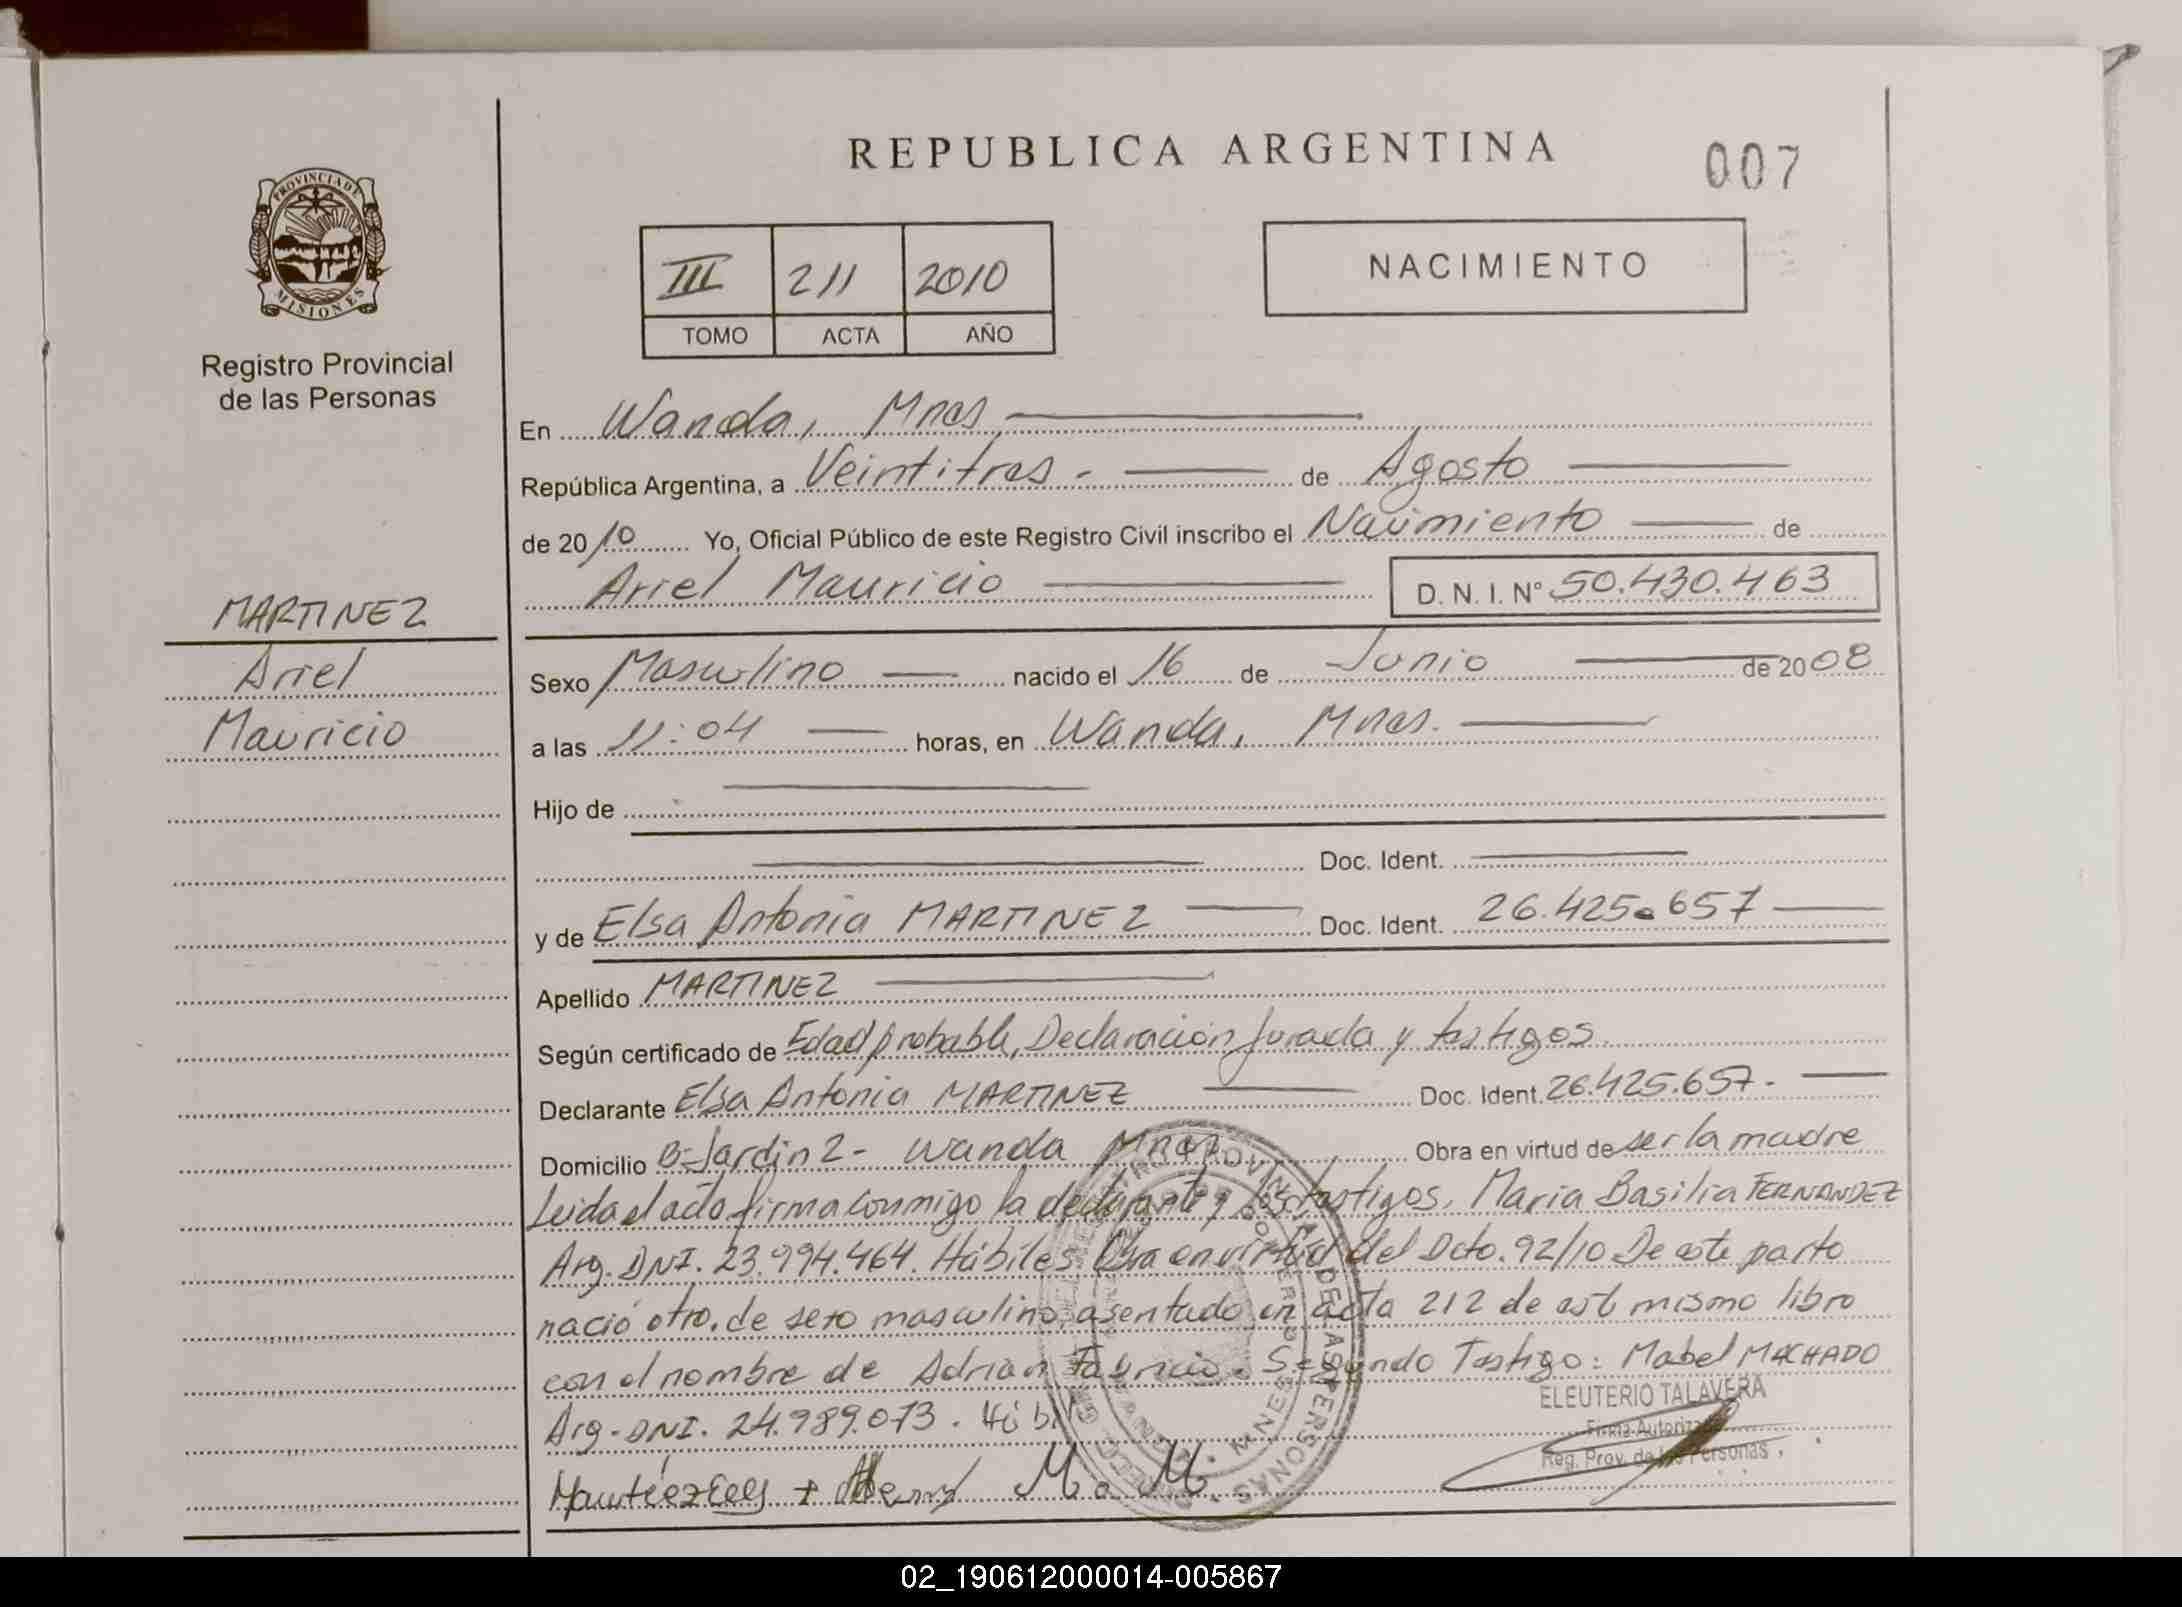 REPUBLICA ARGENTINA
007
PROVINCIA DE
MISIONES
Registro Provincial
de las Personas
III 211 2010
TOMO ACTA AÑO
NACIMIENTO
En Wanda, Mnes
República Argentina, a Veintitres - de Agosto
de 2010 Yo, Oficial Público de este Registro Civil inscribo el Nacimiento de
Ariel Mauricio D. N. I. Nº 50.430.463
MARTINEZ
Ariel
Mauricio
Sexo Masculino nacido el 16 de Junio de 2008
a las 11:04 horas, en Wanda, Mnes.
Hijo de
Doc. Ident.
y de Elsa Antonia MARTINEZ Doc. Ident. 26.425.657
Apellido MARTINEZ
Según certificado de Edad probable, Declaración Jurada y testigos.
Declarante Elsa Antonia MARTINEZ Doc. Ident. 26.425.657.
Domicilio B-Jardin 2- Wanda Mnes. Obra en virtud de ser la madre
Leida el acta firma conmigo la declarante y los testigos, Maria Basilia FERNANDEZ
Arg. DNI. 23.994.464. Hábiles. Obra en virtud del Dcto. 92/10 De este parto
nació otro, de sexo masculino, asentado en acta 212 de este mismo libro
con el nombre de Adrian Fabricio. Segundo Testigo: Mabel MACHADO
Arg. DNI. 24.989.073. Hábil
ELEUTERIO TALAVERA
Firma Autorizada
Reg. Prov. de las Personas
M. M.
02_190612000014-005867